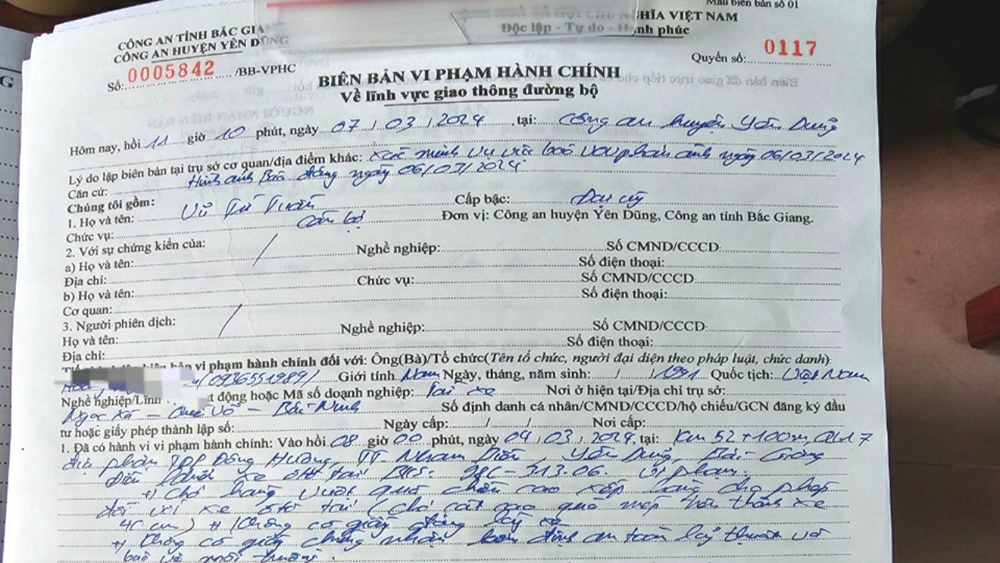 Mẫu biên bản số 01
CÔNG AN TỈNH BẮC GIA
NGHĨA VIỆT NAM
CÔNG AN HUYỆN YÊN DŨNG
Độc lập - Tự do - Hạnh phúc
Số: 0005842 /BB-VPHC
Quyển số: 0117
BIÊN BẢN VI PHẠM HÀNH CHÍNH
Về lĩnh vực giao thông đường bộ
Hôm nay, hồi 11 giờ 10 phút, ngày 07 / 03 / 2024 tại: Công an huyện Yên Dũng
Lý do lập biên bản tại trụ sở cơ quan/địa điểm khác: Xác minh vụ việc báo VOV phản ánh ngày 06/03/2024
Căn cứ: Hình ảnh Báo đăng ngày 06/03/2024
Chúng tôi gồm:
1. Họ và tên: Vũ Trí Tuấn Cấp bậc: Đại úy
Chức vụ: Cán bộ Đơn vị: Công an huyện Yên Dũng, Công an tỉnh Bắc Giang.
2. Với sự chứng kiến của: /
a) Họ và tên: Nghề nghiệp: Số CMND/CCCD
Địa chỉ: Số điện thoại:
b) Họ và tên: Chức vụ: Số CMND/CCCD
Cơ quan: Số điện thoại:
3. Người phiên dịch: /
Họ và tên: Nghề nghiệp: Số CMND/CCCD
Địa chỉ: Số điện thoại:
biên bản vi phạm hành chính đối với: Ông(Bà)/Tổ chức(Tên tổ chức, người đại diện theo pháp luật, chức danh):
(0936551989) Giới tính Nam Ngày, tháng, năm sinh: / / 1991 Quốc tịch: Việt Nam
Nghề nghiệp/Lĩnh t động hoặc Mã số doanh nghiệp: Lái xe Nơi ở hiện tại/Địa chỉ trụ sở:
Ngọc Xá - Quế Võ - Bắc Ninh Số định danh cá nhân/CMND/CCCD/hộ chiếu/GCN đăng ký đầu
tư hoặc giấy phép thành lập số: Ngày cấp: / / Nơi cấp:
1. Đã có hành vi vi phạm hành chính: Vào hồi 08 giờ 00 phút, ngày 04 / 03 / 2024, tại: Km 52 +100m, QL17
địa phận TDP Đông Hương, TT Nham Biền, Yên Dũng, Bắc Giang
Điều khiển xe ôtô tải BKS: 98C-313.06. Vi phạm:
+) Chở hàng vượt quá chiều cao xếp hàng cho phép
đối với xe ôtô tải (chở cát cao quá mép trên thành xe
40 cm) +) Không có giấy đăng ký xe
+) Không có giấy chứng nhận kiểm định an toàn kỹ thuật và
bảo vệ môi trường.